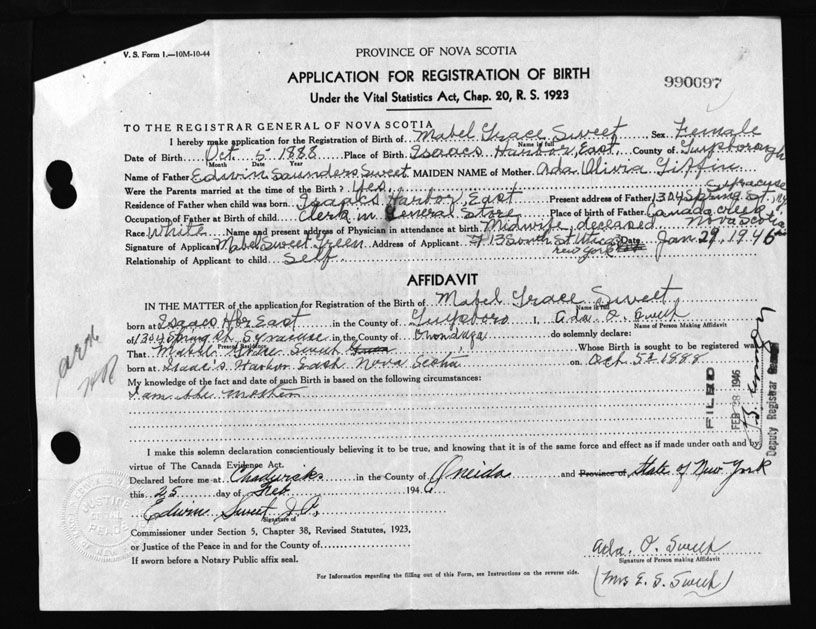 V. S. Form 1.—10M-10-44
PROVINCE OF NOVA SCOTIA
APPLICATION FOR REGISTRATION OF BIRTH
990697
Under the Vital Statistics Act, Chap. 20, R. S. 1923
TO THE REGISTRAR GENERAL OF NOVA SCOTIA
I hereby make application for the Registration of Birth of Mabel Grace Sweet Sex Female
Name in full
Date of Birth Oct. 5 1888 Place of Birth Isaacs Harbor, East County of Guysborough
Month Date Year
Name of Father Edwin Saunders Sweet MAIDEN NAME of Mother Ada Olivia Giffin
Were the Parents married at the time of the Birth? Yes.
Residence of Father when child was born Isaacs Harbor, East Present address of Father 1304 Spring St., Syracuse
Occupation of Father at Birth of child Clerk in General Store Place of birth of Father Canada Creek, Nova Scotia
Race White Name and present address of Physician in attendance at birth Midwife, deceased
Signature of Applicant Mabel Sweet Green Address of Applicant 13 South St. Utica New York Date Jan. 29, 1946
Relationship of Applicant to child Self.
AFFIDAVIT
IN THE MATTER of the application for Registration of the Birth of Mabel Grace Sweet
Name in full
born at Isaacs Hbr East in the County of Guysboro I, Ada O. Sweet
Name of Person Making Affidavit
of 1304 Spring St. Syracuse in the County of Onondaga do solemnly declare:
Present Residence
That Mabel Grace Sweet Whose Birth is sought to be registered was
born at Isaac's Harbor East Nova Scotia on Oct 5th 1888
My knowledge of the fact and date of such Birth is based on the following circumstances:
I am the mother
FILED
FEB 28 1946
Deputy Registrar General
I make this solemn declaration conscientiously believing it to be true, and knowing that it is of the same force and effect as if made under oath and by
virtue of The Canada Evidence Act.
Declared before me at Chadwicks in the County of Oneida and Province of State of New York
this 25 day of Feb 1946
Edwin Sweet J.P.
Signature of
Commissioner under Section 5, Chapter 38, Revised Statutes, 1923,
or Justice of the Peace in and for the County of
If sworn before a Notary Public affix seal.
Ada O. Sweet
Signature of Person making Affidavit
(Mrs E. S. Sweet)
For Information regarding the filling out of this Form, see Instructions on the reverse side.